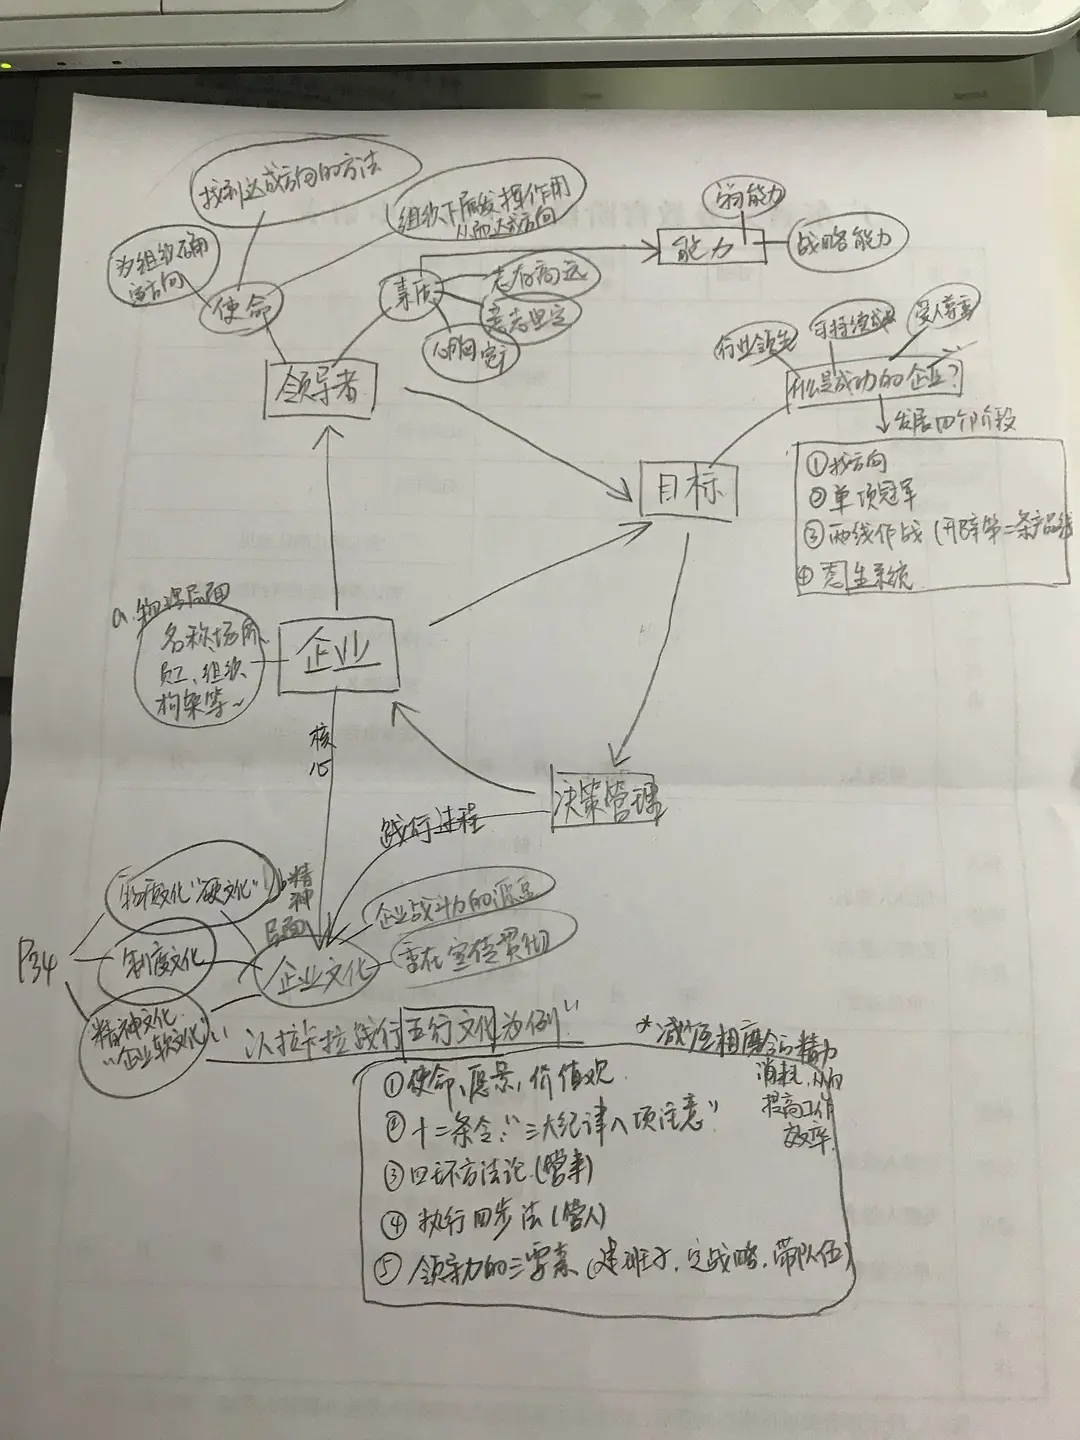 找到达成方向的方法
组织下属发挥作用
从而达成方向
为组织确
定方向
使命
素质
志存高远
意志坚定
心胸宽
能力
战略能力
领导者
行业领先
可持续成
受人尊重
什么是成功的企业?
发展四个阶段
①找方向
②单项冠军
③两线作战(开辟第二条产品线
④生系统
目标
a.物理层面
名称、场所、
员工、组织
构架等~
企业
核
心
决策管理
践行过程
b精
神
层面
企业文化
企业战斗力的源泉
重在宣传贯彻
P34
文化"硬文化"
制度文化
精神文化
"企业软文化"
以拉卡拉践行五行文化为例"
*减低相磨合与精力
消耗,从而
提高工作
效率.
①使命、愿景,价值观
②十二条令:"三大纪律八项注意"
③四环方法论.(管事)
④执行四步法(管人)
⑤领导力的三要素(建班子,定战略,带队伍)